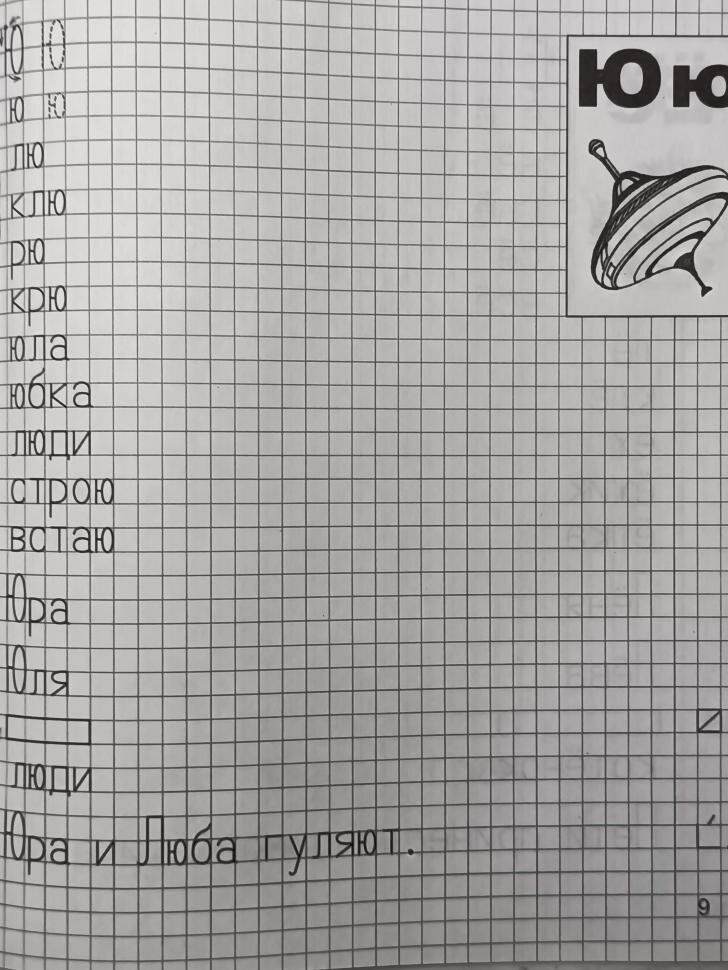 Ю Ю
Ю ю
ю ю
лю
клю
рю
крю
юла
юбка
люди
строю
встаю
Юра
Юля
люди
Юра и Люба гуляют.
9